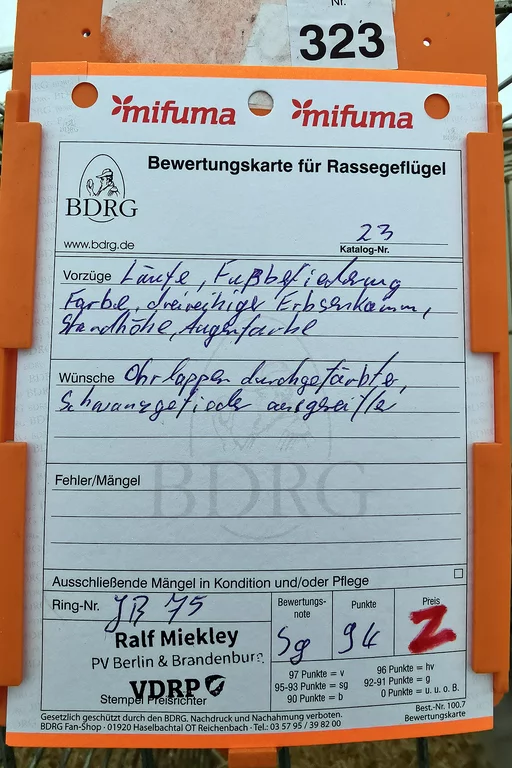 Nr.
323
mifuma mifuma
Bewertungskarte für Rassegeflügel
BDRG
www.bdrg.de
23
Katalog-Nr.
Vorzüge Läufe, Fußbefiederung
Farbe, dreireihiger Erbsenkamm,
Standhöhe, Augenfarbe
Wünsche Ohrlappen durchgefärbter,
Schwanzgefieder ausgereifter
BDRG
Fehler/Mängel
Ausschließende Mängel in Kondition und/oder Pflege
Ring-Nr. JB 75
Bewertungs-
note
Sg
Punkte
94
Preis
Z
Ralf Miekley
PV Berlin & Brandenburg
VDRP
Stempel Preisrichter
97 Punkte = v 96 Punkte = hv
95-93 Punkte = sg 92-91 Punkte = g
90 Punkte = b 0 Punkte = u. u. o. B.
Gesetzlich geschützt durch den BDRG. Nachdruck und Nachahmung verboten.
BDRG Fan-Shop · 01920 Haselbachtal OT Reichenbach · Tel.: 03 57 95 / 39 82 00
Best.-Nr. 100.7
Bewertungskarte